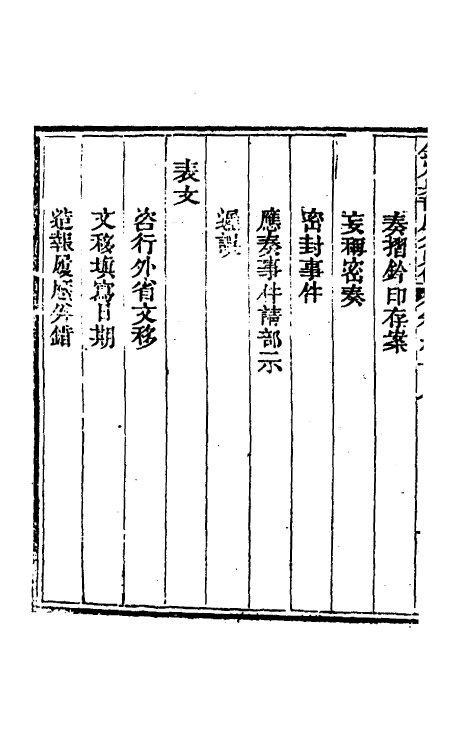 奏摺鈐印存案
妄稱密奏
密封事件
應奏事件請部示
遲誤
表文
咨行外省文移
文移填寫日期
造報履歷舛錯